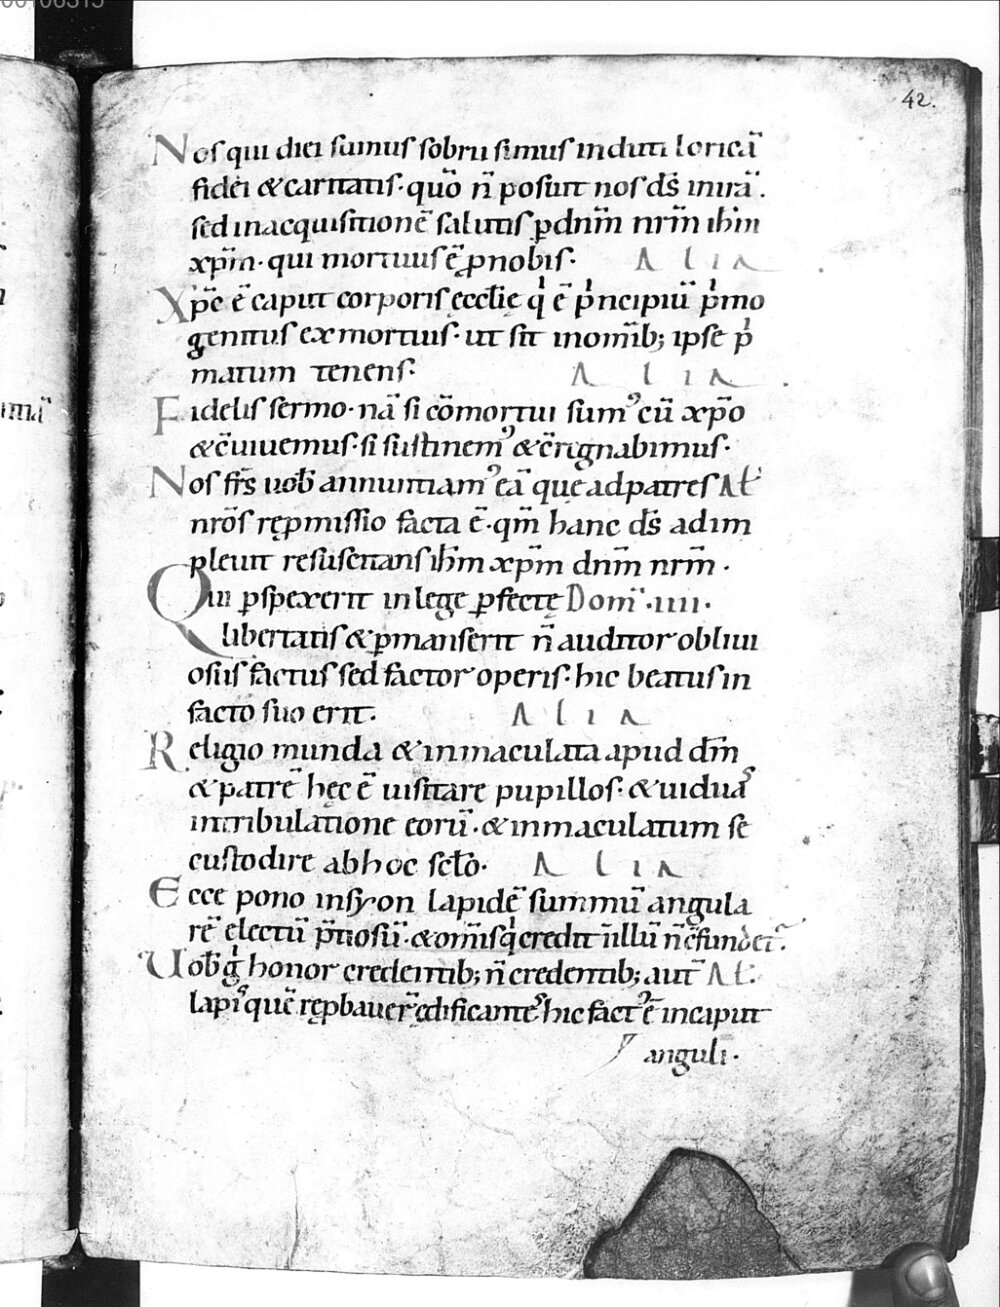 00106315
42.
Nos qui diei sumus sobrii simus induti loricā
fidei & caritatis · quō n̄ posuit nos ds̄ in irā .
sed in acquisitionē salutis ꝑ dnm̄ nrm̄ ihm̄
xpm̄ · qui mortuus ē ꝓ nobis · A l i a
Xpc̄ ē caput corporis ęcclīę qͥ ē pͥncipiū pͥmo
genitus ex mortuis · ut sit in om̄ib; ipse pͥ
matum tenens · A l i a
Fidelis sermo · nā si cōmortui sumꝰ cū xp̄o
& c̄uiuemus · si sustinemꝰ & c̄regnabimus ·
Nos frs̄ uob̄ annuntiamꝰ eā que ad patres Al̄
nrōs repmissio facta ē · qm̄ hanc ds̄ adim
pleuit resuscitans ihm̄ xpm̄ dnm̄ nrm̄ ·
Qui ꝑspexerit in lege ꝑfectę Dom̄ · iiii ·
libertatis & ꝑmanserit n̄ auditor obliui
osus factus sed factor operis · hic beatus in
facto suo erit · A l i a
Religio munda & inmaculata apud dm̄
& patrē hęc ē uisitare pupillos · & uiduaˢ
in tribulatione eorū · & inmaculatum se
custodire ab hoc scłō · A l i a
Ecce pono in syon lapidē summū angula
rē electū p̄tiosū · & om̄is qͥ credit in illū n̄ c̄fundetᷣ ·
Uob̄ gͥ honor credentib; n̄ credentib; aut̄ Al̄ ·
lapiˢ quē repbauer̄ ędificanteˢ hic factꝰ ē in caput
anguli ·